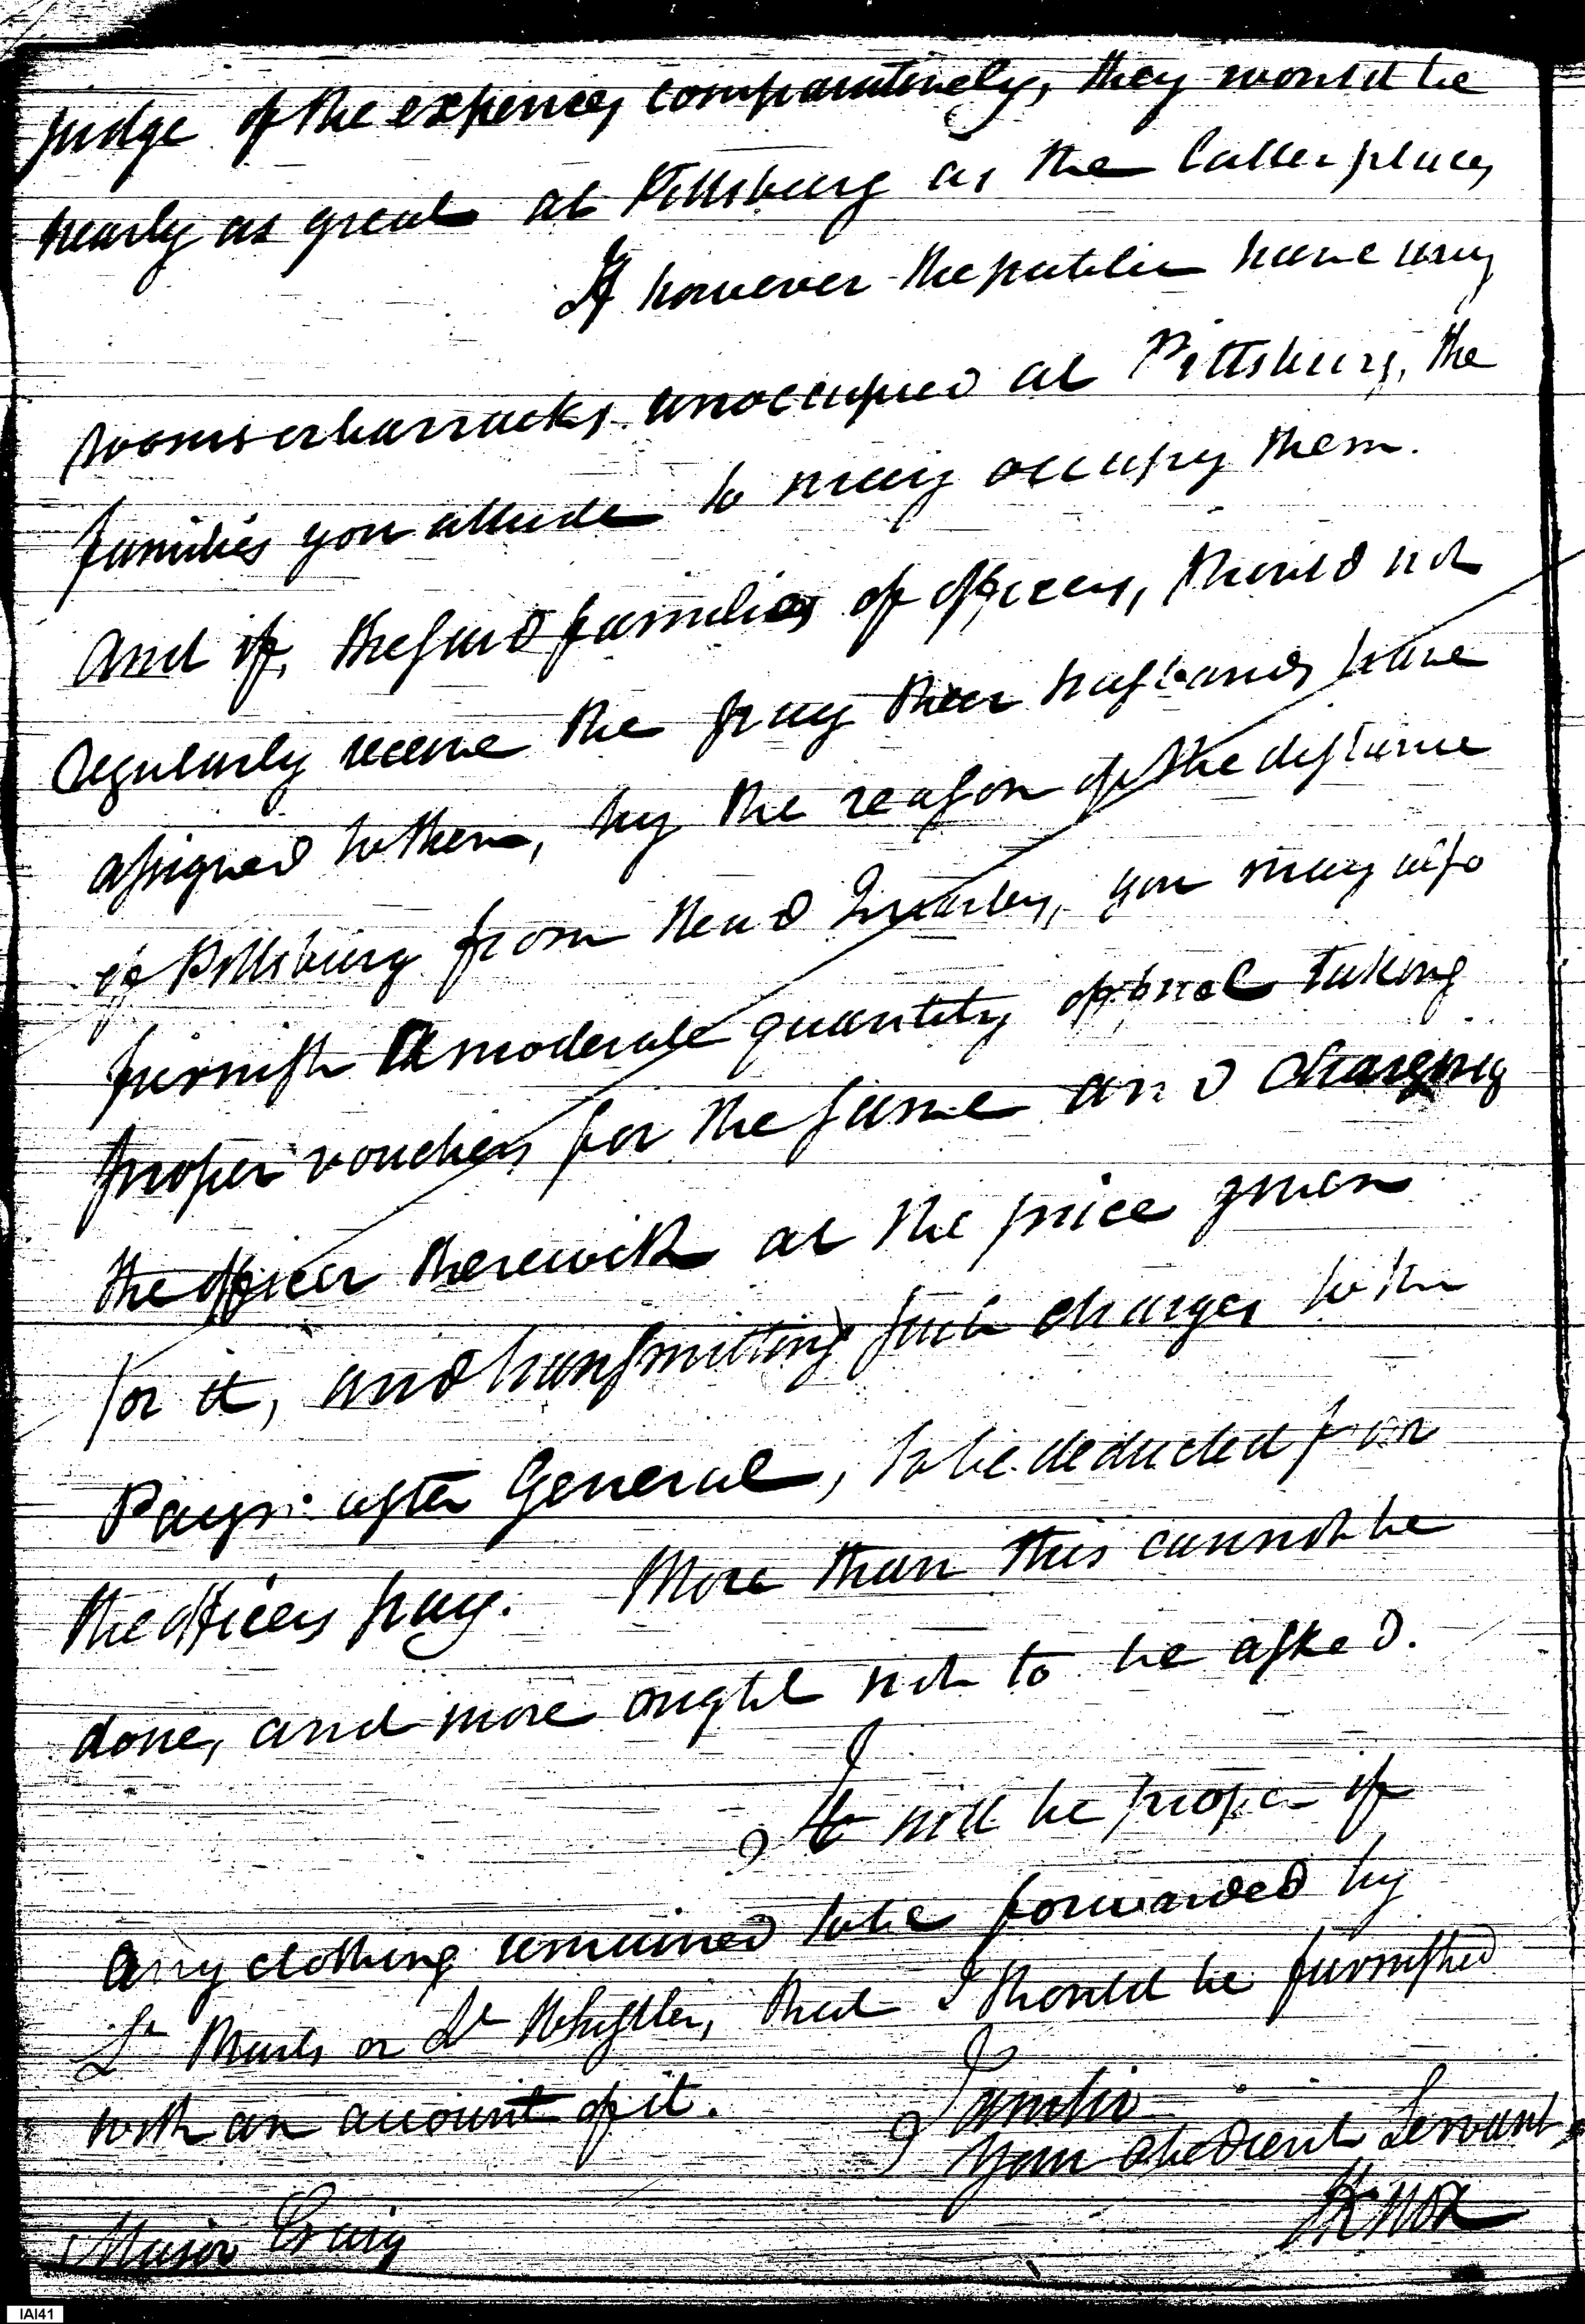 judge of the expences comparatively, they would be
nearly as great at Pittsburg as the latter place,
If however the public have any
rooms or barracks unoccupied at Pittsburg, the
families you allude to may occupy them.
And if, the said families of officers, should not
regularly receive the pay their husbands have
assigned to them, by the reason of the distance
of Pittsburg from Head Quarters, you may also
furnish a moderate quantity of fuel taking
proper vouchers for the same and charging
the officer therewith at the price given
for it, and transmitting such charges to the
Paymaster General, to be deducted from
the officers pay. More than this cannot be
done, and more ought not to be asked.
It will be proper if
any clothing remained to be forwarded by
Lt Marks or Lt Whistler, that I should be furnished
with an account of it.
I am Sir
Your obedient Servant,
HKnox
Major Craig
IAI41